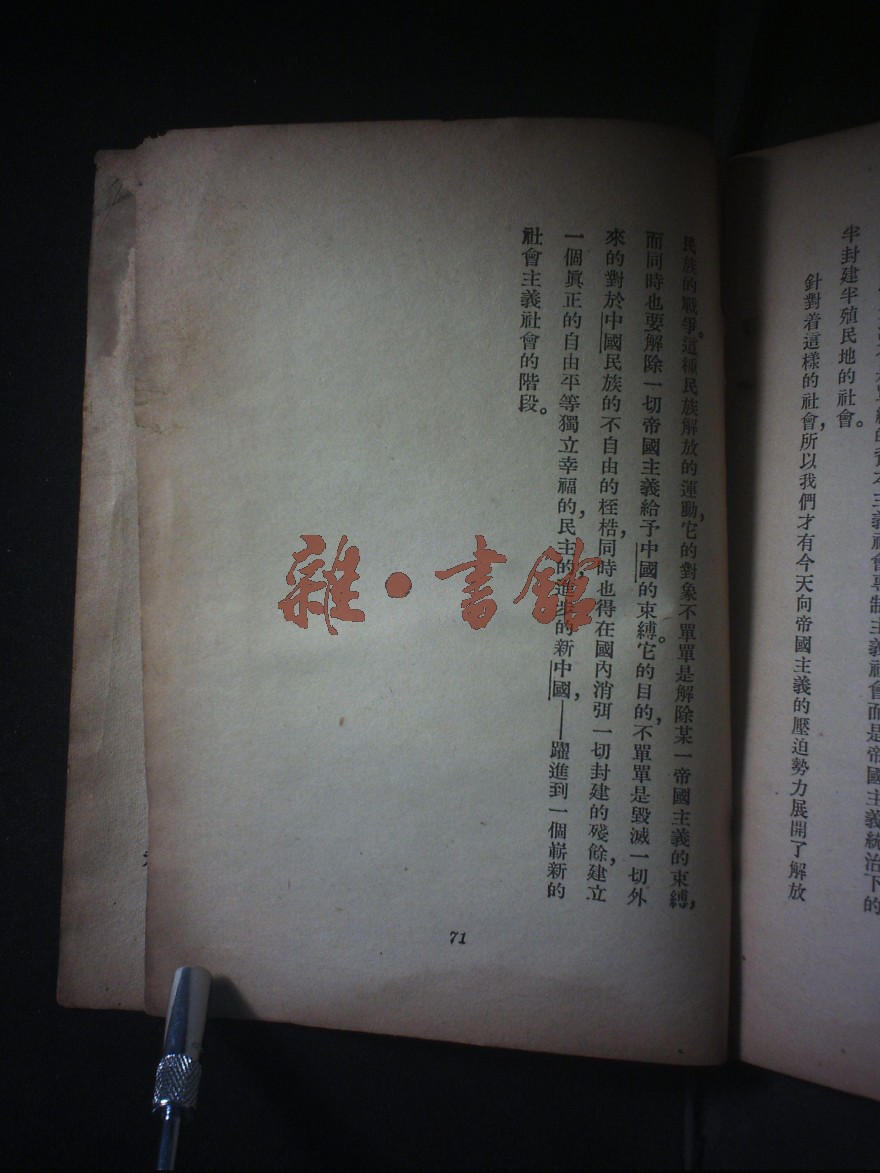 資本主義社會專制主義社會而是帝國主義統治下的
半封建半殖民地的社會。
針對着這樣的社會,所以我們才有今天向帝國主義的壓迫勢力展開了解放
民族的戰爭。這種民族解放的運動,它的對象不單單是解除某一帝國主義的束縛,
而同時也要解除一切帝國主義給予中國的束縛。它的目的,不單單是毀滅一切外
來的對於中國民族的不自由的桎梏,同時也得在國內消弭一切封建的殘餘,建立
一個眞正的自由平等獨立幸福的,民主的,進步的新中國,——躍進到一個嶄新的
社會主義社會的階段。
71
雜•書館